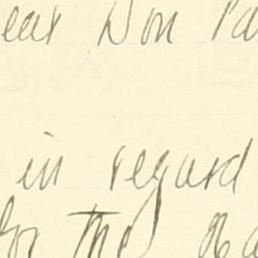 ear Don Pa
in regard
for the